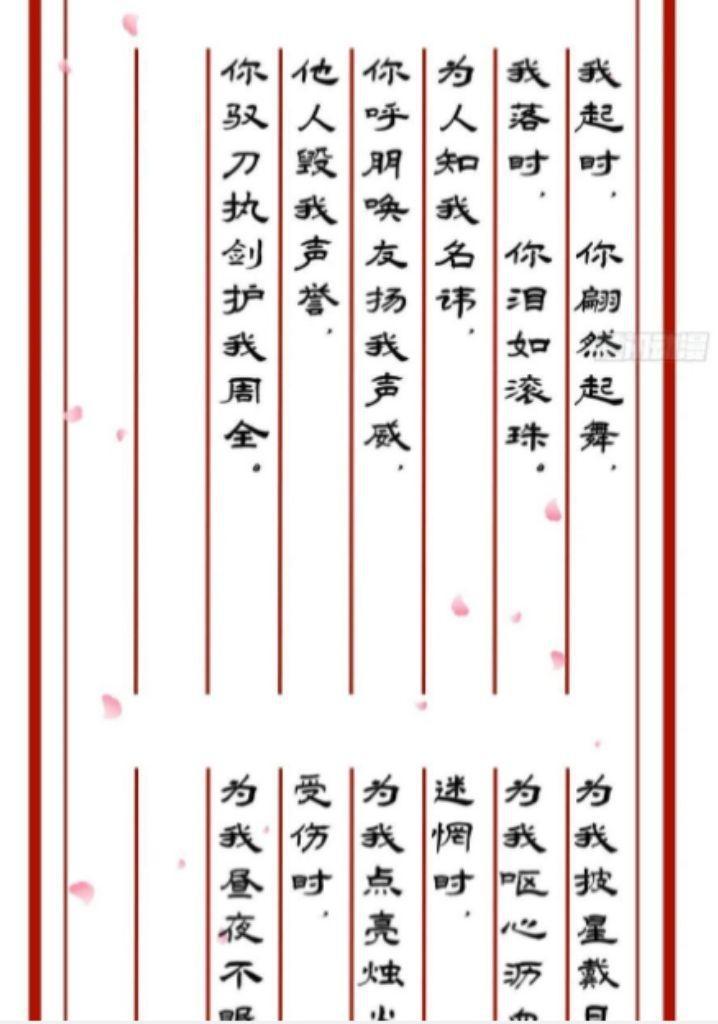 我起时，你翩然起舞，
我落时，你泪如滚珠。
为人知我名讳，
你呼朋唤友扬我声威，
他人毁我声誉，
你驭刀执剑护我周全。
为我披星戴月
为我呕心沥血
迷惘时，
为我点亮烛火
受伤时，
为我昼夜不眠